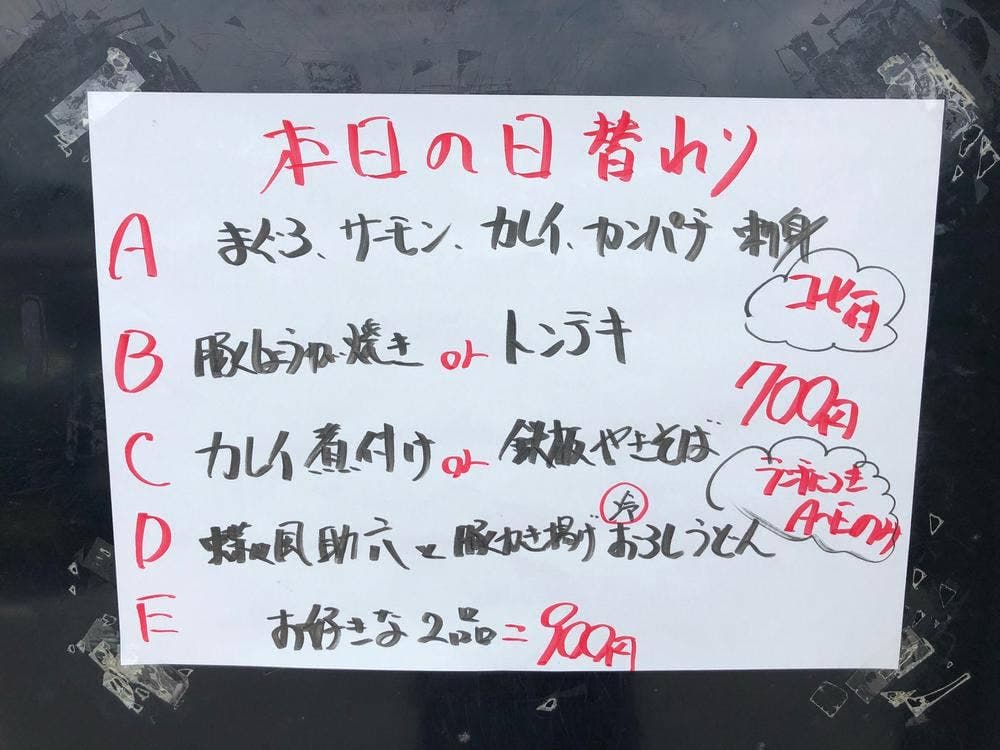 本日の日替わり
A まぐろ、サーモン、カレイ、カンパチ 刺身
コーヒー付
B 豚しょうが焼き or トンテキ
700円
C カレイ煮付け or 鉄板やきそば
D 風助六と豚かき揚げおろしうどん
冷
A〜Eのみ
E お好きな2品=900円